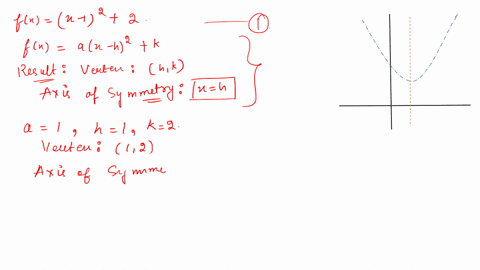 f(x) = (x-1)² + 2. ①
f(x) = a(x-h)² + k
Result: Vertex: (h,k)
Axis of Symmetry: x=h
a = 1, h=1, k=2.
Vertex: (1,2)
Axis of Symme